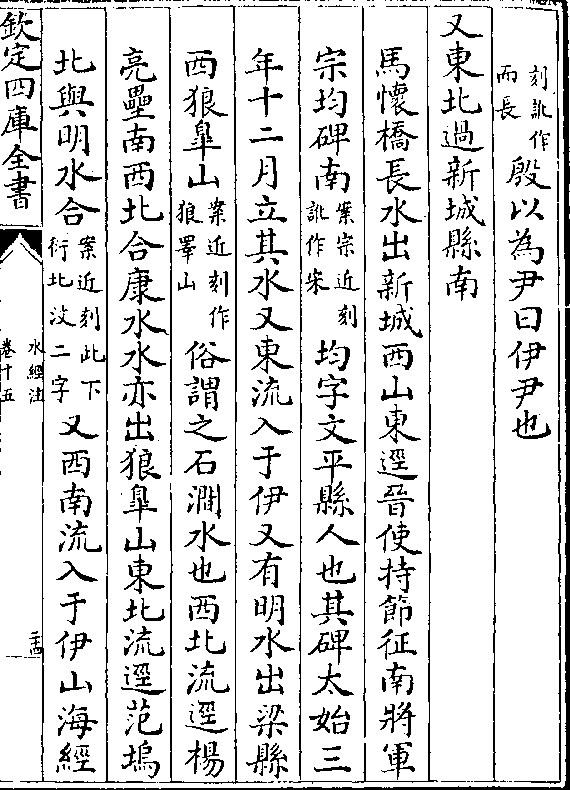 刻訛作
而長
殷以為尹曰伊尹也
又東北過新城縣南
馬懷橋長水出新城西山東逕晉使持節征南將軍
宗均碑南
案宗近刻
訛作宋
均字文平縣人也其碑太始三
年十二月立其水又東流入于伊又有明水出梁縣
西狼皐山
案近刻作
狼睪山
俗謂之石澗水也西北流逕楊
亮壘南西北合康水水亦出狼皐山東北流逕范塢
北與明水合
案近刻此下
衍北二字
又西南流入于伊山海經
欽定四庫全書
水經注
卷十五